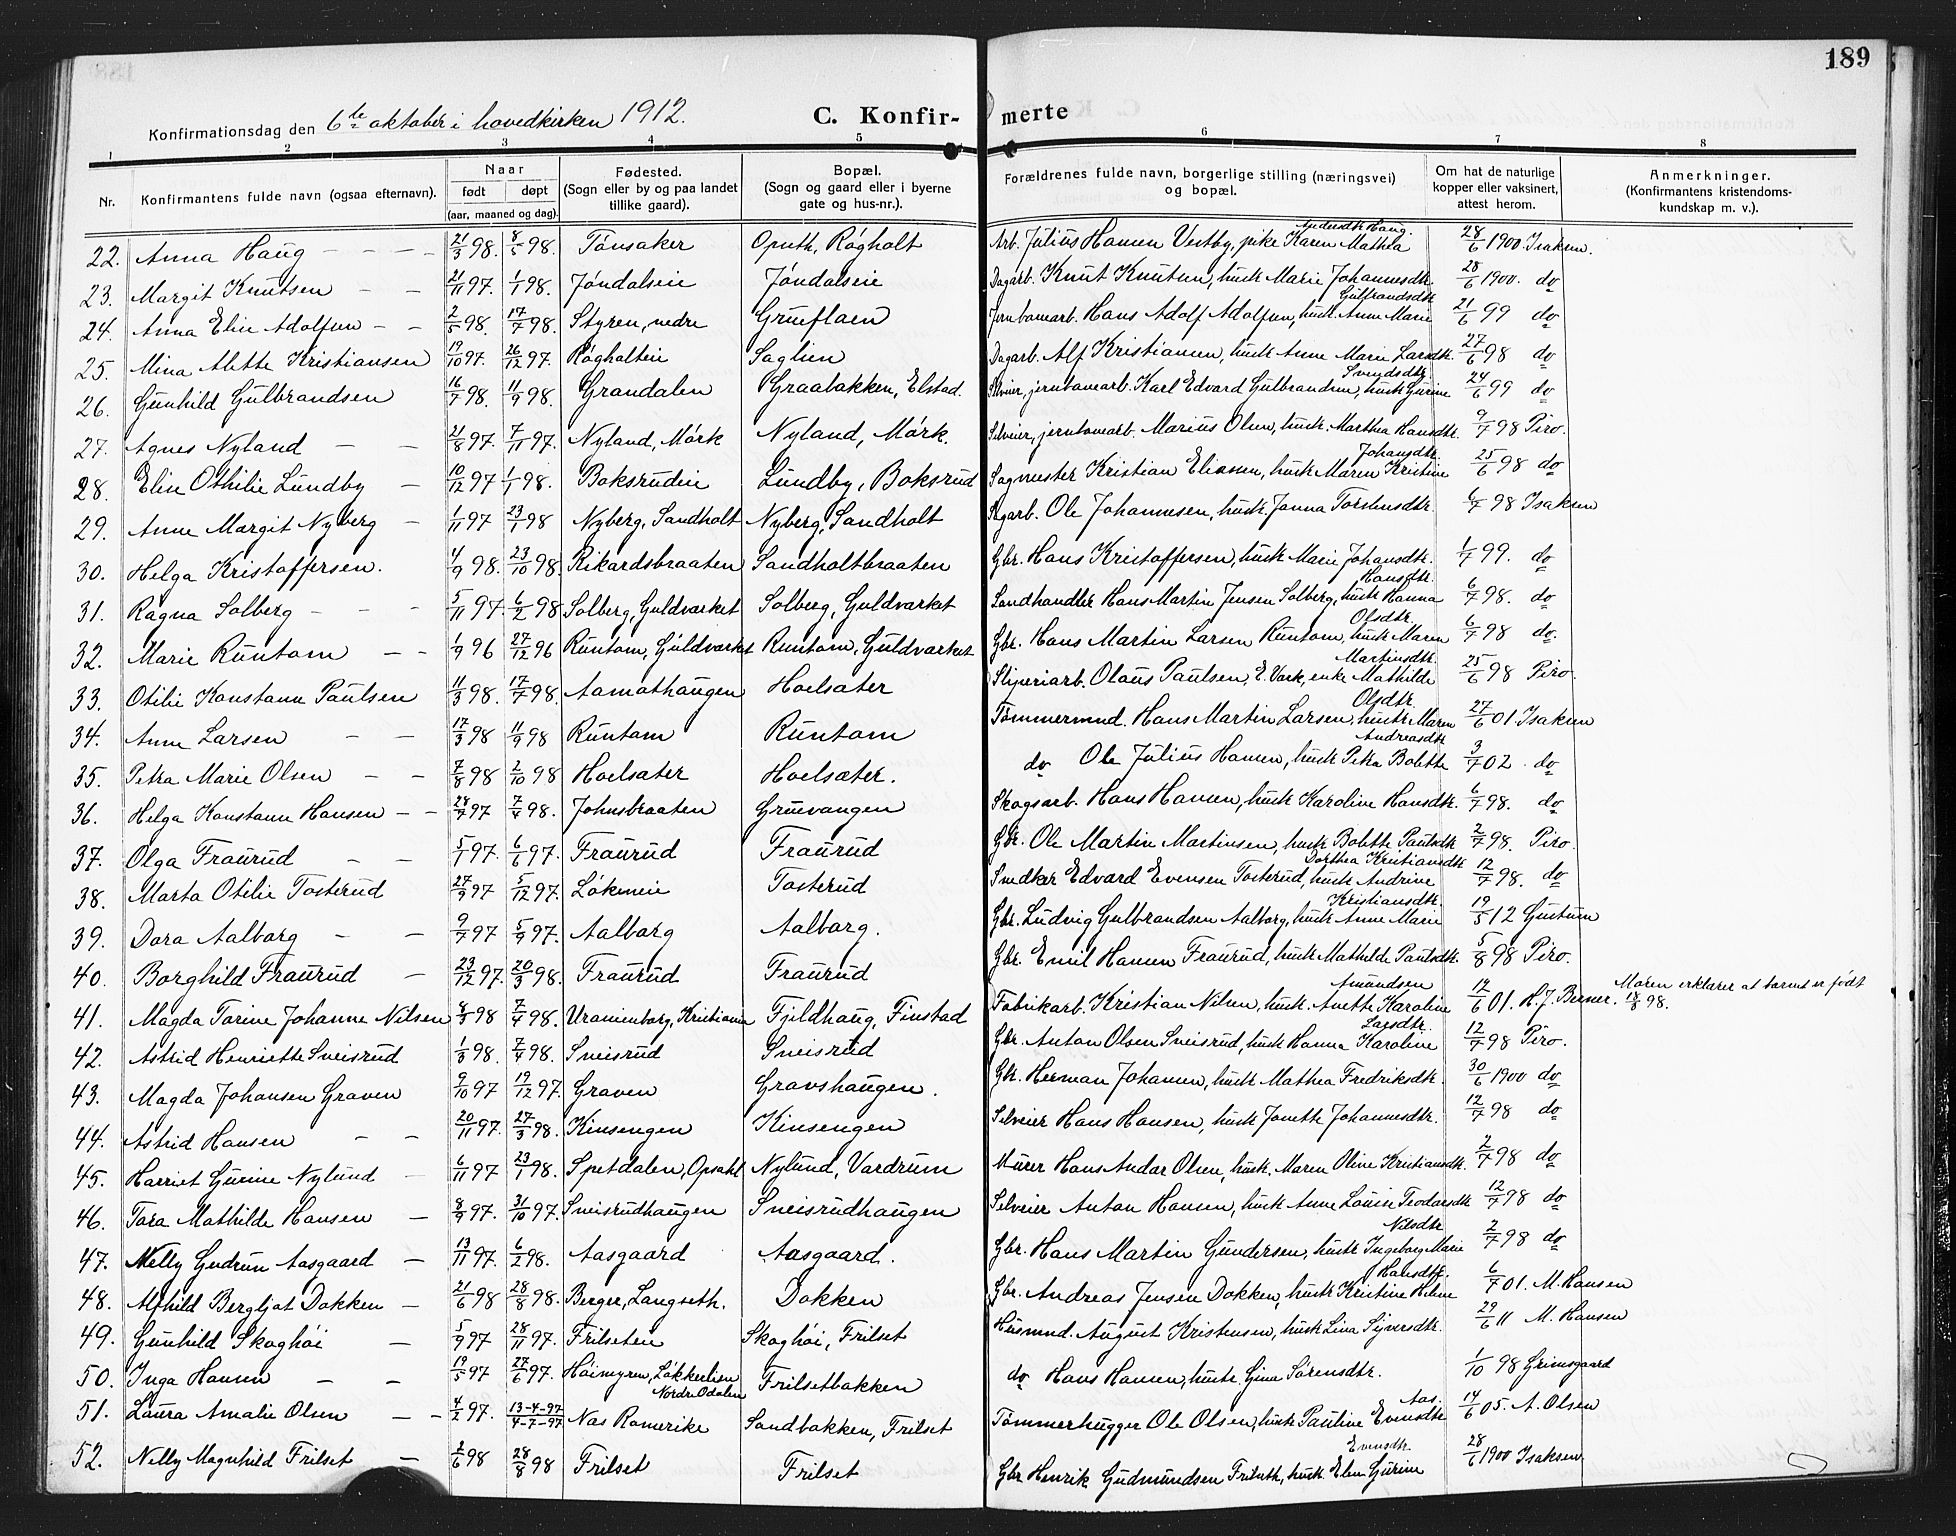 189
Konfirmationsdag den 6te oktober i hovedkirken 1912. C. Konfirmerte
1 2 3 4 5 6 7 8
Nr. Konfirmantens fulde navn (ogsaa efternavn). Naar født døpt (aar, maaned og dag). Fødested. (Sogn eller by og paa landet tillike gaard). Bopæl. (Sogn og gaard eller i byerne gate og hus-nr.). Forældrenes fulde navn, borgerlige stilling (næringsvei) og bopæl. Om hat de naturlige kopper eller vaksinert, attest herom. Anmerkninger. (Konfirmantens kristendoms-kundskap m. v.).
22. Anna Haug - - - 21/3 98. 8/5 98. Tønsaker Opsth, Røgholt Arb. Julius Hansen Vestby, pike Karen Mathea Andersdtr Haug. 28/6 1900. Isaksen.
23. Margit Knutsen - - 21/11 97. 1/1 98. Jøndalseie Jøndalseie Dagarb. Knut Knutsen, hustr. Marie Johannesdtr. 28/6 1900. do
24. Anna Elise Adolfsen - - 2/5 98. 17/7 98. Styren, nedre Grueflaen Jernbanearb. Hans Adolf Adolfsen, hustr. Anne Marie Gulbrandsdtr 21/6 99 do
25. Mina Alette Kristiansen 19/10 97. 26/12 97. Røgholteie Saglien Dagarb. Alf Kristiansen, hustr. Anne Marie Larsdtr. 27/6 98 do
26. Gunhild Gulbrandsen 16/7 98. 11/9 98. Grandalen Graabakken, Elstad. Selveier, jernbanearb. Karl Edvard Gulbrandsen, hustr. Gurine Svendsdtr 24/6 99 do
27. Agnes Nyland - - 21/8 97. 7/11 97. Nyland, Mørk Nyland, Mørk. Selveier, jernbanearb. Marius Olsen, hustr. Marthea Hansdtr. 9/7 98 Piro.
28. Elise Othilie Lundby - 10/12 97 1/1 98. Boksrudeie Lundby, Boksrud Sagmester Kristian Eliasen, hustr. Maren Kristine Johansdtr. 25/6 98 do
29. Anne Margit Nyberg - 1/11 97 23/1 98 Nyberg, Sandholt Nyberg, Sandholt Sagarb. Ole Johannesen, hustr. Janna Torstensdtr. 6/7 98 Isaksen
30. Helga Kristoffersen. 4/9 98. 23/10 98. Rikardsbraaten Sandholtbraaten Gbr. Hans Kristoffersen, hustr. Marie Johansdtr. 1/7 99. do
31. Ragna Solberg - - - 5/11 97. 6/2 98 Solberg, Guldvarket Solberg, Guldvarket Landhandler Hans Martin Jensen Solberg, hustr. Hanna Hansdtr. 6/7 98. do
32. Marie Runtom - - 1/9 96 27/12 96 Runtom, Guldvarket Runtom, Guldvarket Gbr. Hans Martin Larsen Runtom, hustr. Maren Olsdtr. 6/7 98 do.
33. Otilie Konstanse Paulsen 11/3 98. 17/7 98. Aamothaugen Hoelsæter Sliperiarb. Olaus Paulsen, E. Vark, enke Mathilde Martinsdtr. 25/6 98 Piro.
34. Anne Larsen - - 17/3 98 11/9 98 Runtom Runtom Tømmermnd. Hans Martin Larsen, hustr. Maren Olsdtr. 27/6 01. Isaksen
35. Petra Marie Olsen - - 7/8 98 2/10 98 Hoelsæter Hoelsæter. do Ole Julius Hansen, hustr. Petra Bolette Andreasdtr 3/7 02. do
36. Helga Konstanse Hansen - - 28/7 97 7/4 98. Johnsbraaten Gruvangen Skogsarb. Hans Hansen, hustr. Karoline Hansdtr. 6/7 98. do
37. Olga Fraurud - - 5/1 97. 6/6 97. Fraurud Fraurud Gbr. Ole Martin Martinsen, hustr. Bolette Paulsdtr 2/7 98. Piro.
38. Marta Otilie Tosterud 27/9 97 5/12 97. Løkeneie Tosterud Snedker Edvard Evensen Tosterud, hustr. Andrine Dorthea Kristiansdtr 12/7 98. do
39. Dora Aalborg - - 9/7 97 5/9 97. Aalborg Aalborg. Gbr. Ludvig Gulbrandsen Aalborg, hustr. Anne Marie Kristiansdtr. 19/5 12 Gustum
40. Borghild Fraurud - 23/12 97. 20/3 98. Fraurud Fraurud Gbr. Emil Hansen Fraurud, hustr. Mathilde Paulsdtr. 5/8 98 Piro.
41. Magda Torine Johanne Nilsen 8/3 98 7/4 98. Uranienborg, Kristiania Fjeldhaug, Finstad Fabrikarb. Kristian Nilsen, hustr. Anette Karoline Amundsen 12/6 01. H. J. Berner. Moren erklærer at barnet er født 18/3 98.
42. Astrid Henriette Sneisrud 1/3 98. 7/4 98. Sneisrud Sneisrud Gbr. Anton Olsen Sneisrud, hustr. Hanna Karoline Larsdtr. 12/7 98 Piro.
43. Magda Johansen Graven 9/10 97 19/12 97. Graven Gravshaugen. Gbr. Herman Johansen, hustr. Mathea Fredriksdtr. 30/6 1900 do
44. Astrid Hansen - - 20/11 97. 27/3 98. Kinsengen Kinsengen Selveier Hans Hansen, hustr. Jonette Johannesdtr. 12/7 98 do
45. Harriet Gurine Nylund - 6/11 97 23/1 98. Spetdalen, Opsahl Nylund, Vardrum Murer Hans Andar Olsen, hustr. Maren Oline Kristiansdtr. 2/7 98 do
46. Tora Mathilde Hansen - 8/9 97. 31/10 97. Sneisrudhaugen Sneisrudhaugen Selveier Anton Hansen, hustr. Anne Louise Teodorsdtr 12/7 98 do
47. Nelly Gudrun Aasgaard - 13/11 97. 6/2 98. Aasgaard Aasgaard. Gbr. Hans Martin Gundersen, hustr. Ingeborg Marie Nilsdtr 2/7 98 do
48. Alfhild Bergljot Dokken - 21/6 98 28/8 98. Berger, Langseth. Dokken Gbr. Andreas Jensen Dokken, hustr. Kristine Helene Hansdtr. 6/7 01. M. Hansen
49. Gunhild Skoghøi - 5/9 97 28/11 97. Frilseteie Skoghøi, Frilset Husmnd. August Kristensen, hustr. Lina Sijversdtr. 29/6 11 M. Hansen
50. Inga Hansen - - 19/5 97 27/6 97. Høimyren, Løkkerlien Nordr. Odalen Frilsetbakken do Hans Hansen, hustr. Gina Sørensdtr. 1/10 98 Grimsgaard
51. Laura Amalie Olsen - - 4/2 97. 13-4-97 4-7-97 Nas Romerike Sandbakken, Frilset Tømmerhugger Ole Olsen, hustr. Pauline Evensdtr Aas. 14/6 05. A. Olsen
52. Nelly Magnhild Frilset - 2/6 98 28/8 98 Frilset Frilset Gbr Henrik Gudmundsen Frilseth, hustr. Elen Gurine Evensdtr. 28/6 1900 Isaksen.